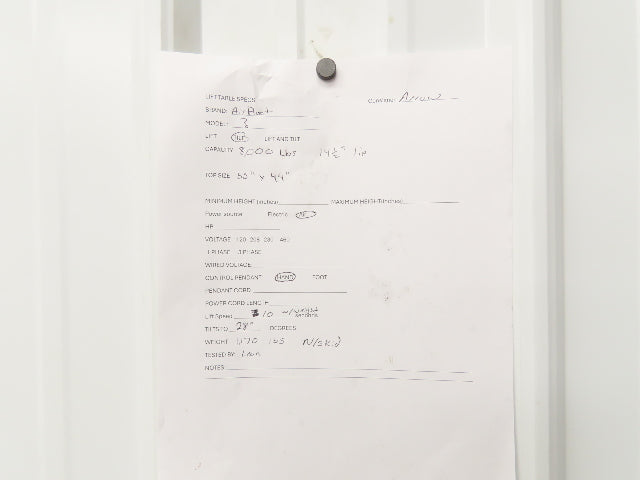 LIFT TABLE SPECS COMPANY Arrow
BRAND: Air Boat
MODEL: ?
LIFT TILT LIFT AND TILT
CAPACITY 8,000 lbs 14 1/2" lip
TOP SIZE 50" x 44"
MINIMUM HEIGHT (inches) MAXIMUM HEIGHT (inches)
Power source Electric Air
HP
VOLTAGE 120 208 230 460
1 PHASE 3 PHASE
WIRED VOLTAGE
CONTROL PENDANT HAND FOOT
PENDANT CORD
POWER CORD LENGTH
Lift Speed 10 w/weight seconds
TILTS TO 28° DEGREES
WEIGHT 1,170 lbs W/skid
TESTED BY:
NOTES